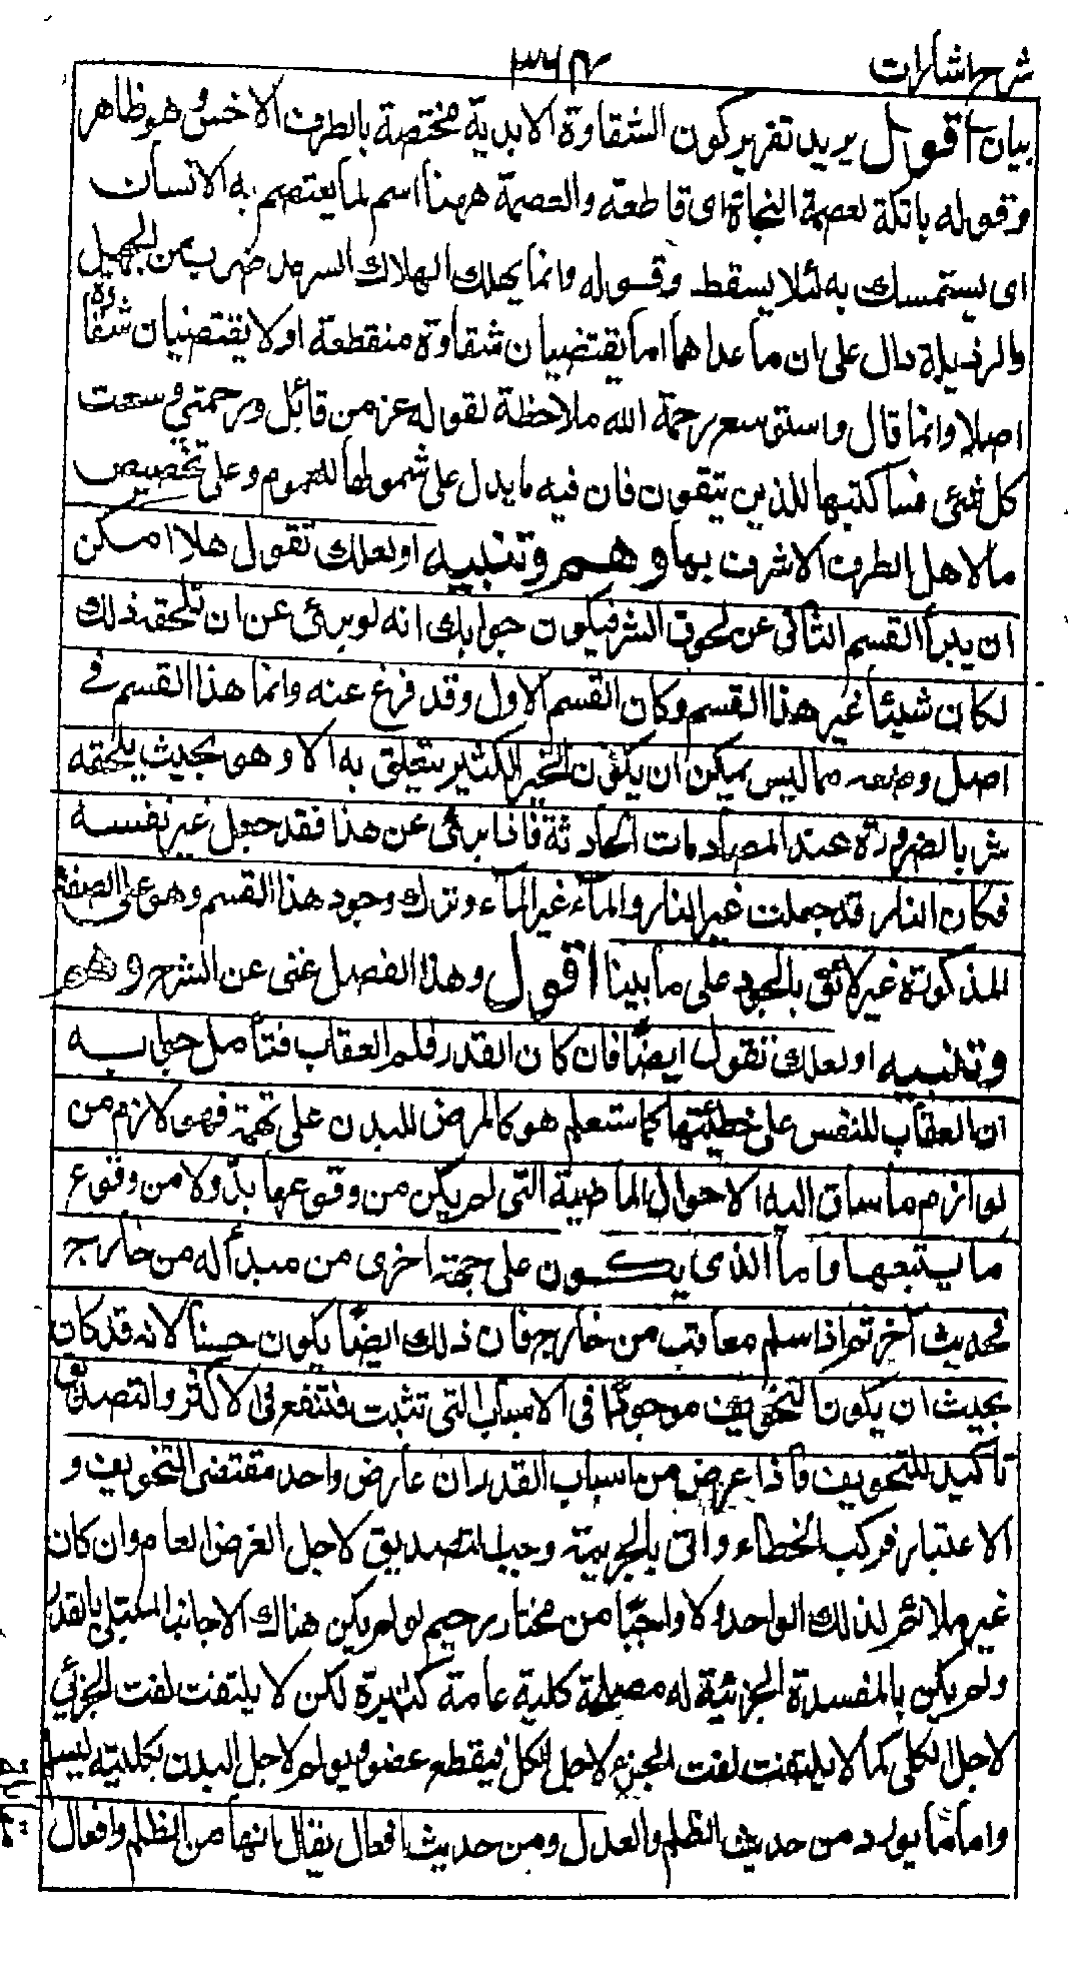 شرح اشارات ٣٦٤
بيان أقول يريد تقرير كون الشقاوة الابدية مختصة بالطرف الاخس وهو ظاهر
وقوله باتكة لعصمة النجاة اى قاطعة والعصمة ههنا اسم لما يعتصم به الانسان
اى يستمسك به لئلا يسقط وقوله وانما يهلك الهلاك السرمد ضرب من الجهل
والرذيلة دال على ان ما عداهما اما يقتضيان شقاوة منقطعة او لا يقتضيان شقاوة
اصلا وانما قال واستوسع رحمة الله ملاحظة لقوله عز من قائل ورحمتي وسعت
كل شئ فساكتبها للذين يتقون فان فيه ما يدل على شمولها للعموم وعلى تخصيص
ما لاهل الطرف الاشرف بها وهم وتنبيه او لعلك تقول هلا امكن
ان يبرأ القسم الثانى عن لحوق الشر فيكون جوابك انه لو برئ عن ان يلحقه ذلك
لكان شيئا غير هذا القسم وكان القسم الاول وقد فرغ عنه وانما هذا القسم فى
اصل وضعه مما ليس يمكن ان يكون الخير الكثير يتعلق به الا وهو بحيث يلحقه
شر بالضرورة عند المصادمات الحادثة فاذا برئ عن هذا فقد جعل غير نفسه
فكان النار قد جعلت غير النار والماء غير الماء وترك وجود هذا القسم وهو على الصفة
المذكورة غير لائق بالجود على ما بينا اقول وهذا الفصل غنى عن الشرح وهم
وتنبيه او لعلك تقول ايضا فان كان القدر فلم العقاب فتأمل جوابه
ان العقاب للنفس على خطيئتها كما ستعلم هو كالمرض للبدن على نهمه فهو لازم من
لوازم ما ساق اليه الاحوال الماضية التى لم يكن من وقوعها بد ولا من وقوع
ما يتبعها واما الذى يكون على جهة اخرى من مبدأ له من خارج
فحديث آخر ثم اذا سلم معاقب من خارج فان ذلك ايضا يكون حسنا لانه قد كان
بجيث ان يكون التخويف موجودا فى الاسباب التى تثبت فتنفع فى الاكثر والتصديق
تاكيد للتخويف فاذا عرض من اسباب القدر ان عارض واحد مقتضى التخويف و
الاعتبار فركب الخطاء واتى بالجريمة وجب التصديق لاجل الغرض العام وان كان
غير ملائم لذلك الواحد ولا واجبا من مختار رحيم لو لم يكن هناك الا جانب المبتلى بالقدر
ولم يكن بالمفسدة الجزئية له مصلحة كلية عامة كثيرة لكن لا يلتفت لفت الجزئي
لاجل الكلى كما لا يلتفت لفت الجزء لاجل الكل فيقطع عضو ويولم لاجل البدن بكليته ليسلم
واما ما يورد من حديث الظلم والعدل ومن حديث افعال يقال انها من الظلم وافعال